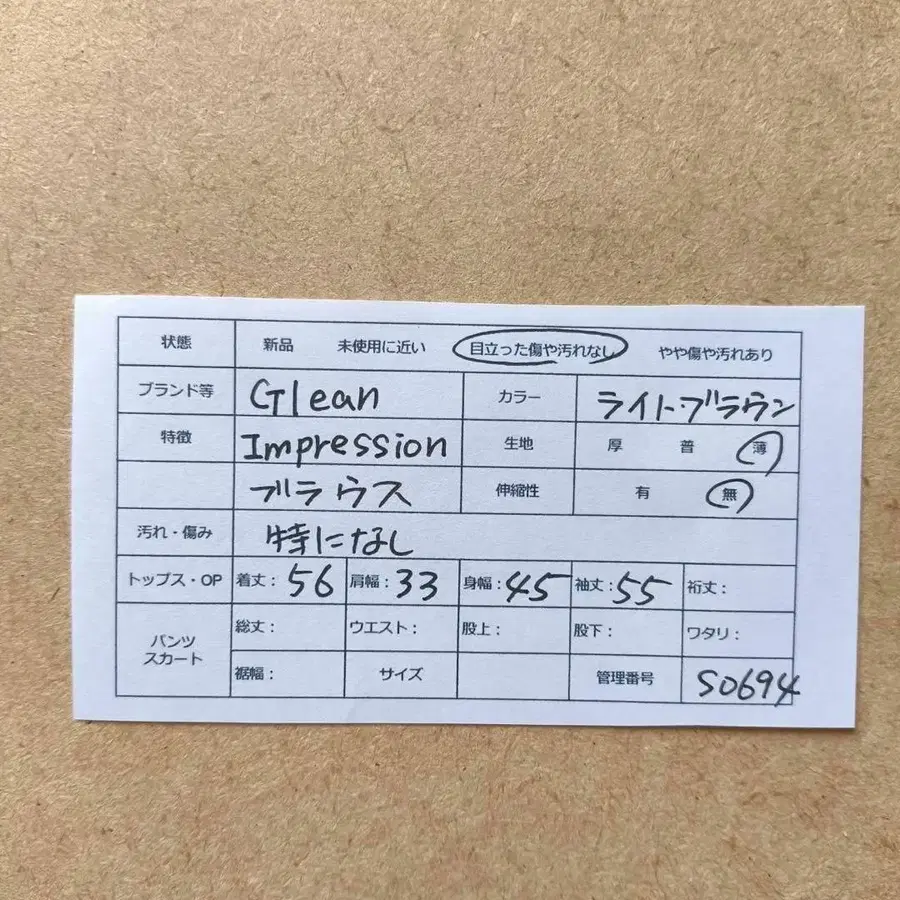 状態 新品 未使用に近い 目立った傷や汚れなし やや傷や汚れあり
ブランド等 Glean カラー ライトブラウン
特徴 Impression 生地 厚 普 薄
ブラウス 伸縮性 有 無
汚れ・傷み 特になし
トップス・OP 着丈：56 肩幅：33 身幅：45 袖丈：55 裄丈：
パンツ スカート 総丈： ウエスト： 股上： 股下： ワタリ：
裾幅： サイズ 管理番号 S0694